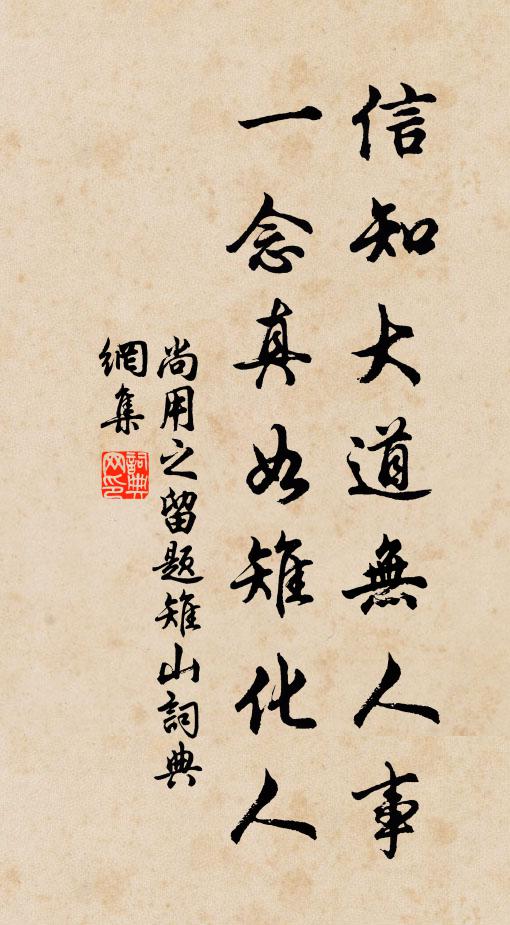 信知大道無人事
一念真如雉化人
尚用之留題雉山詞典
網集
詞典
网印